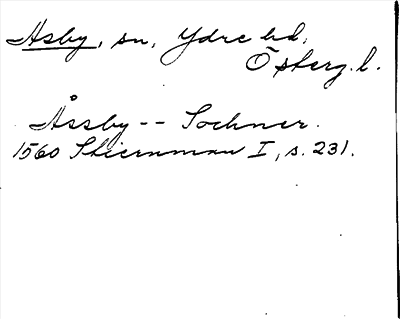 Asby, sn, Ydre hd,
Östergl.
Åssby -- Sochner.
1560 Stiernman I, s. 231.